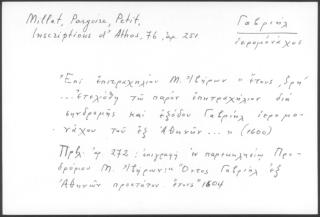 Millet, Pargoire, Petit,
Inscriptions d'Athos, 76, ἀρ. 251.
Γαβριὴλ
ἱερομόναχος
"Ἐπὶ ἐπιτραχηλίου Μ. Ἰβήρων "ἔτους ͵ζρη'
...ἐτελιώθη τὸ παρὸν ἐπητραχήλιον διά
συνδρομῆς καὶ ἐξόδου Γαβριὴλ ἱερομο-
νάχου τοῦ ἐξ Ἀθηνῶν ... " (1600)
Πρβλ. ἀρ. 272: ἐπιγραφὴ ἐν παρεκκλησίῳ Προ-
δρόμου Μ. Ἰβήρων: "Ὅντος Γαβριὴλ ἐξ
Ἀθηνῶν προεστῶτος. ἔτους" 1604